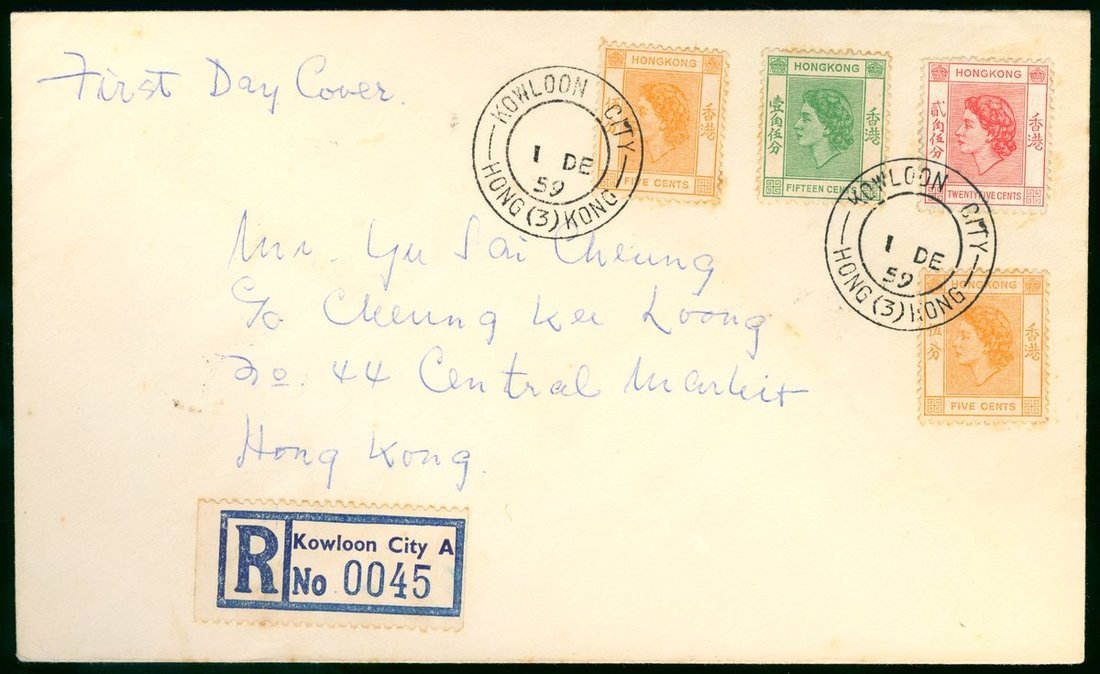 First Day Cover.
KOWLOON CITY
1 DE
59
HONG (3) KONG
香港
FIVE CENTS
HONGKONG
壹角伍分
香港
FIFTEEN CENT
HONGKONG
貳角伍分
香港
TWENTY FIVE CENTS
KOWLOON CITY
1 DE
59
HONG (3) KONG
HONGKONG
伍分
香港
FIVE CENTS
Mr. Yu Sai Cheung
c/o Cheung Kee Loong
No. 44 Central Market
Hong Kong.
R
Kowloon City A
No 0045